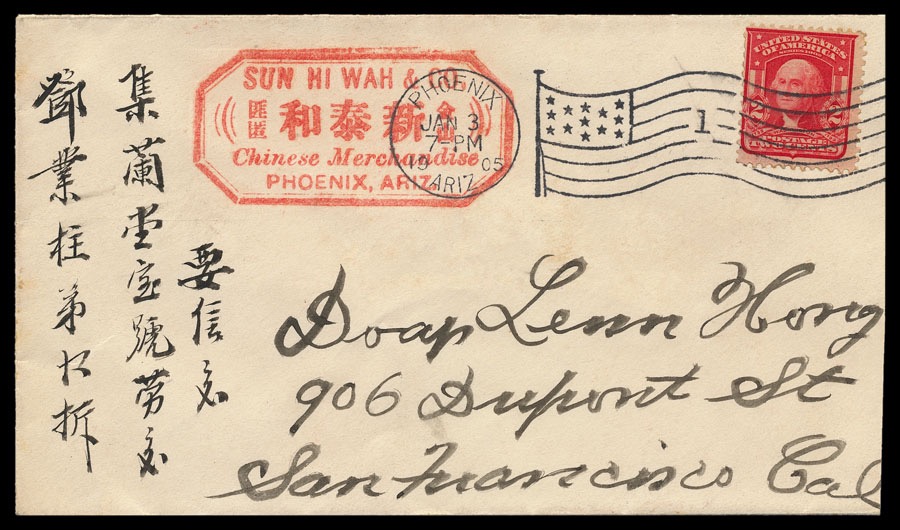 SUN HI WAH & CO
匯 匿 和泰新
Chinese Merchandise
PHOENIX, ARIZ.
PHOENIX
JAN 3
7-PM
19 05
ARIZ
1
UNITED STATES
OF AMERICA
2 2
POSTAGE
TWO CENTS
Doap Lenn Hong
906 Dupont St
San Francisco Cal
要信
集蘭堂宝號勞
鄧業柱弟 拆